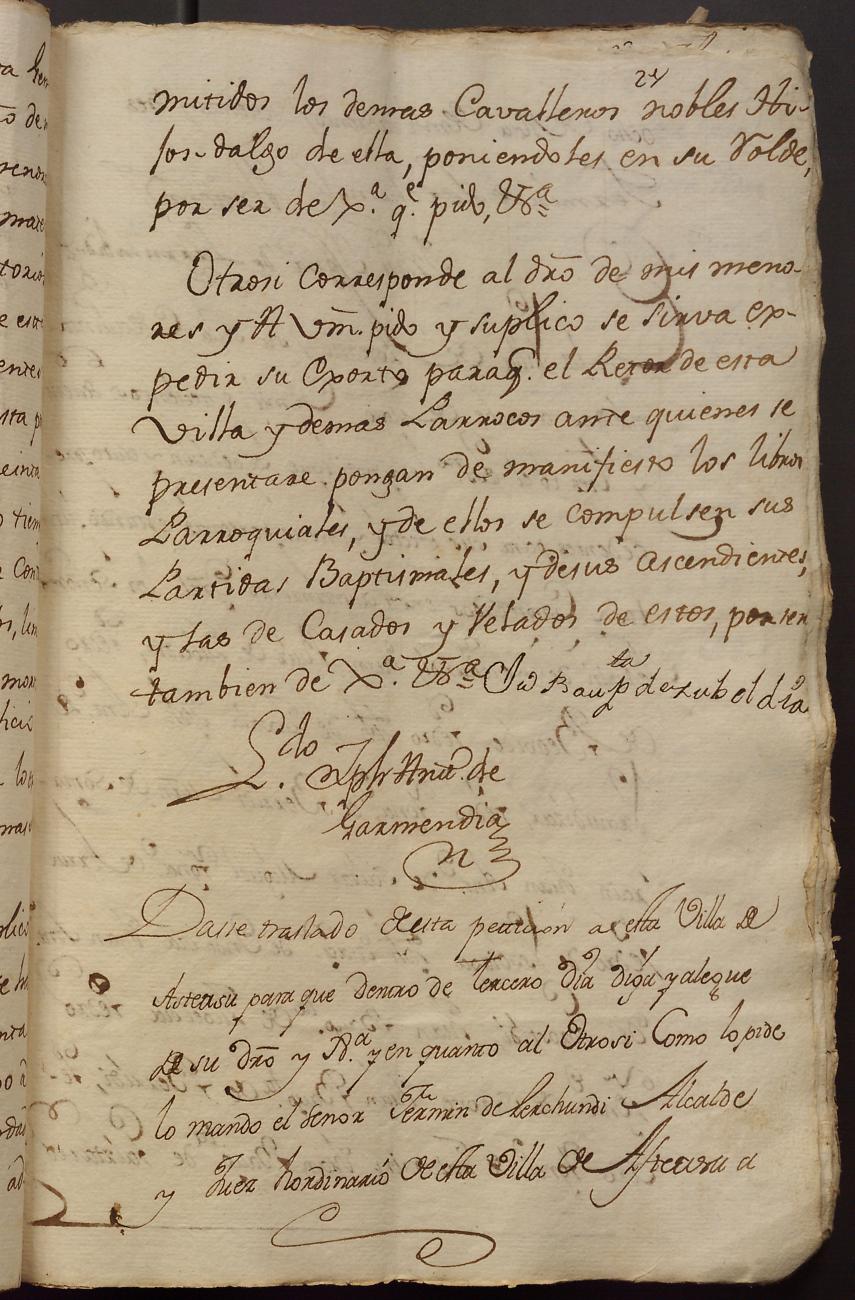 mitidos los demas Cavalleros nobles Hi-
jos-dalgo de ella, poniendoles en su Rolde,
por ser de Xª. qᵉ. pido, &ª
Otrosi corresponde al dro de mis meno-
res y A Vm. pido y suplico se sirva ex-
pedir su Exorto paraq. el Retor de esta
Villa y demas Parrocos ante quienes se
presentare pongan de manifiesto los libros
Parroquiales, y de ellos se compulsen sus
Partidas Baptismales, y desus ascendientes,
y las de Casados y Velados de estos, por ser
tambien de Xª. &ª Jn Baupᵗᵃ de zubeldia
Lᵈᵒ. Jph Antº. de
Garmendia
Dasse traslado desta peticion a esta Villa de
Asteasu para que dentro de tercero dia diga y alegue
de su dro y Jª. y en quanto al Otrosi Como lo pide
lo mando el Senor Fermin de Lerchundi Alcalde
y Juez hordinario de esta Villa de Asteasu a